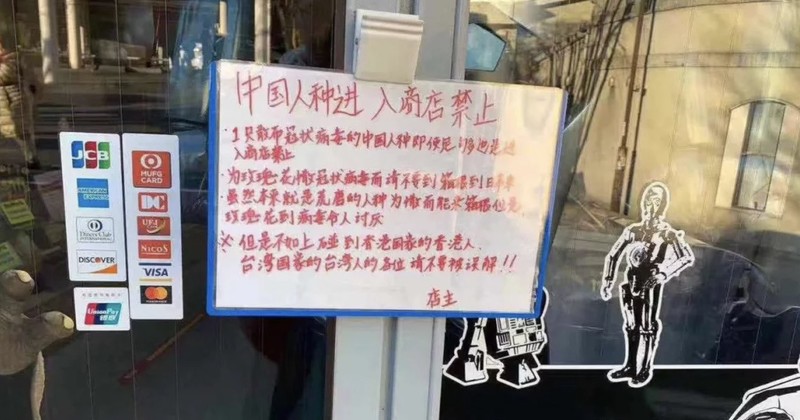 中国人种进 入商店禁止
·1 只散布冠状病毒的中国人种即使是 1多也是进
入商店禁止
·为玫瑰花情冠状病毒而请不要到箱根到日本来
·虽然本来就是荒磨的人种为撒而能安箱根但是
玫瑰花到病毒令人讨厌
※但是不如上碰到香港国家的香港人.
台湾国家的台湾人的各位请不要被误解!!
店主
JCB
AMERICAN EXPRESS
Diners Club INTERNATIONAL
DISCOVER
UnionPay
银联
MUFG CARD
DC
UFJ
NICOS
VISA
mastercard